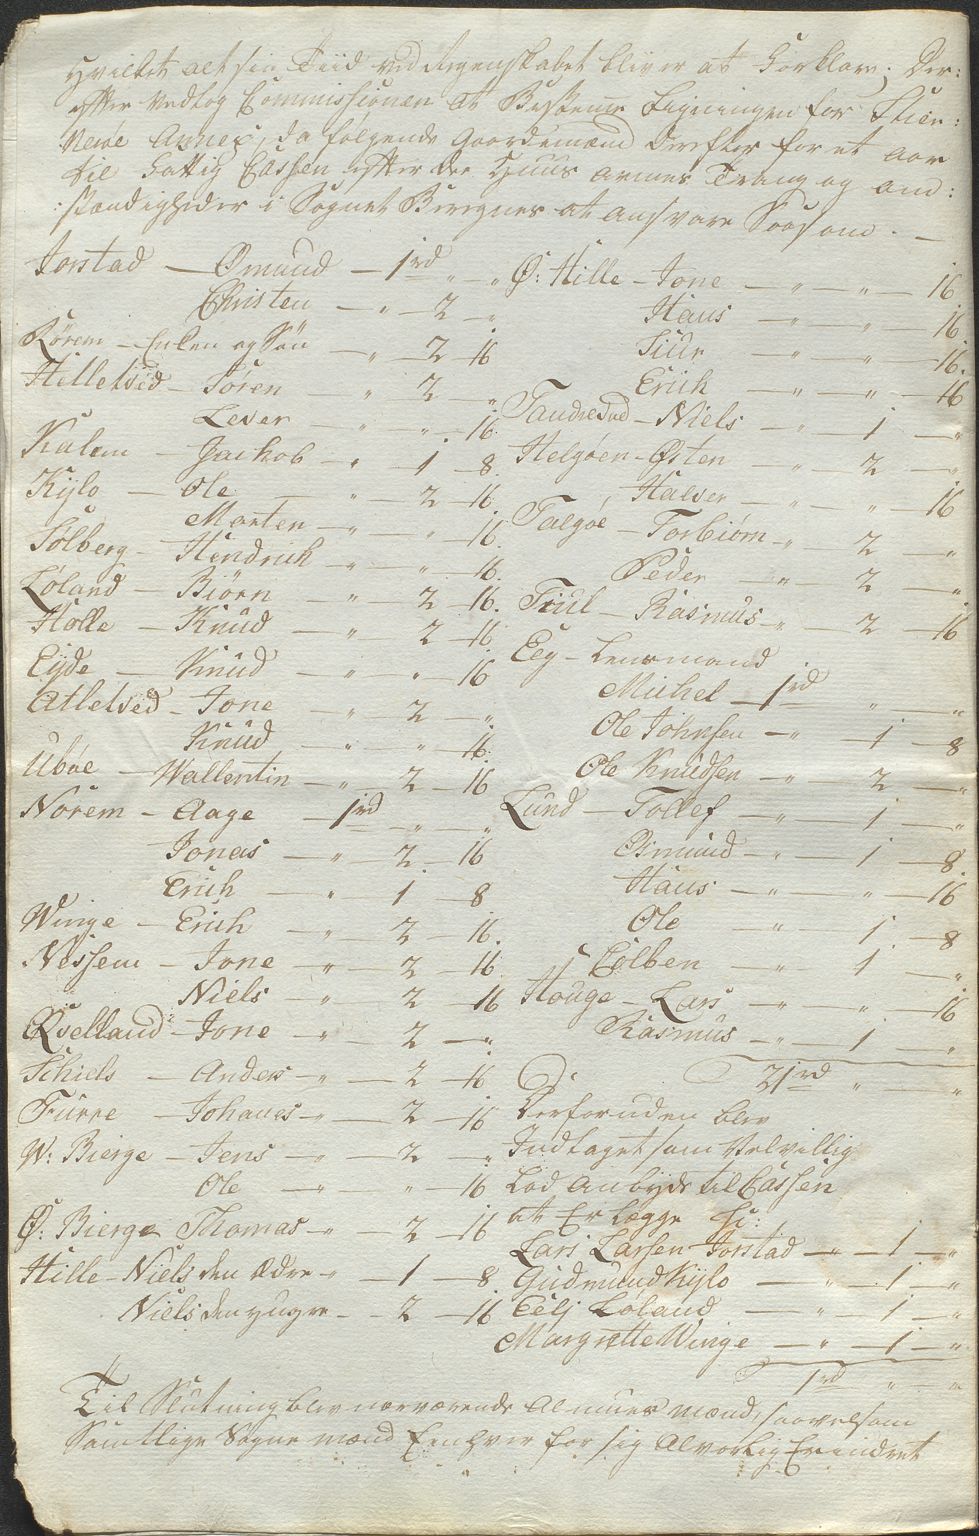 Hvilket alt sin Tiid ved Regenskabet bliver at Forklare; Der:
:effter Vedtog Commissionen at Bestemme Ligningen for Stier:
Nerøe Annex, da følgende Gaardemænd derefter for et Aar
til Fattig Cassen effter Der Huus armes Trang og om:
:stændigheder i Sognet Beregnes at ansvare Saasom. —
Jorstad — Omund — 1rd „ „
Christen — „ — 2 — „
Rørem — Enken og Søn — „ — 2 — 16
Helletved — Søren — „ — 2 — „
Lever — „ — „ — 16.
Kalem — Jackob — „ — 1 — 8.
Kylo — Ole — „ — 2 — 16.
Morten — „ — „ — 16.
Solberg — Hendrich — „ — „ — 16.
Løland — Biørn — „ — 2 — 16.
Holle — Knud — „ — 2 — 16
Eyde — Knud — „ — „ — 16
Atletved — Jone — „ — 2 — „
Knud — „ — „ — 16.
Ubøe — Wallentin — „ — 2 — 16
Norem — Aage — 1rd — „ — „
Jonas — „ — 2 — 16
Erich — „ — 1 — 8
Winge — Erich — „ — 2 — 16.
Nessem — Jone — „ — 2 — 16
Niels — „ — 2 — 16
Qvelland — Jone — „ — 2 — „
Schiels — Anders — „ — 2 — 16
Furre — Johanes — „ — 2 — 16
W: Bierge — Jens — „ — 2 — „
Ole — „ — „ — 16
Ø: Bierge Thomas — „ — 2 — 16
Hille — Niels den Ædre — „ — 1 — 8
Niels den yngre — „ — 2 — 16
Ø: Hille — Jone — „ — „ — 16
Hans — „ — „ — 16
Siur — „ — „ — 16.
Erich — „ — „ — 16
Tandrevad — Niels — „ — 1 — „
Helgøen — Østen — „ — 2 — „
Halver — „ — „ — 16
Talgøe — Torbiørn — „ — 2 — „
Peder — „ — 2 — „
Tiul — Rasmus — „ — 2 — 16
Eeg — Lensmand
Michel — 1rd — „ — „
Ole Johnsen — „ — 1 — 8
Ole Knudsen — „ — 2 — „
Lund — Tollef — „ — 1 — „
Osmund — „ — 1 — 8.
Hans — „ — „ — 16
Ole — „ — 1 — 8
Colben — „ — 1 — „
Houge — Lars — „ — „ — 16
Rasmus — „ — 1 — „
21rd „ — „
Derforuden blev
Indtaget som Velvillig
Lod Anbyde til Cassen
at Erlægge
Lars Larsen Jorstad — „ — 1 — „
Gudmund Kylo — „ — 1 — „
Løland — „ — 1 — „
Margrette Winge — „ — 1 — „
1rd „ — „
Til Slutning blev nærværende Almues mænd, saavelsom
Samtlige Sogne mænd Eenhver for sig Alvorlig Erindret